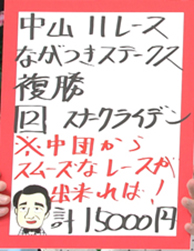 中山11レース
ながつきステークス
複勝
12 スナークライデン
※中団から
スムーズなレースが
出来れば!
計15000円